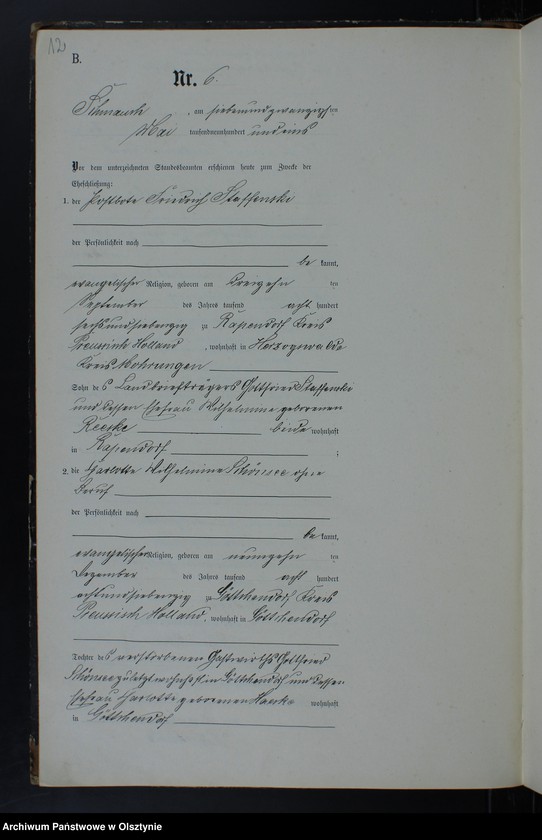 12
B.
Nr. 6.
Schmauch, am siebenundzwanzigsten
Mai tausendneunhundert und eins
Vor dem unterzeichneten Standesbeamten erschienen heute zum Zwecke der
Eheschließung:
1. der Postbote Friedrich Staffenski
der Persönlichkeit nach
be kannt,
evangelischer Religion, geboren am dreizehn ten
September des Jahres tausend acht hundert
sechsundsiebenzig zu Rapendorf Kreis
Preussisch Holland, wohnhaft in
Kreis Mohrungen
Sohn des Landbriefträgers Gottfried Staffenski
und dessen Ehefrau Wilhelmine geborenen
Reeske beide wohnhaft
in Rapendorf ;
2. die Charlotte Wilhelmine Schönsee ohne
Beruf
der Persönlichkeit nach
be kannt,
evangelischer Religion, geboren am neunzehn ten
Dezember des Jahres tausend acht hundert
achtundsiebenzig zu Göttchendorf Kreis
Preussisch Holland, wohnhaft in Göttchendorf
Tochter des verstorbenen Gastwirths Gottfried
Schönsee zuletzt wohnhaft in Göttchendorf und dessen
Ehefrau Charlotte geborenen wohnhaft
in Göttchendorf
Archiwum Państwowe w Olsztynie